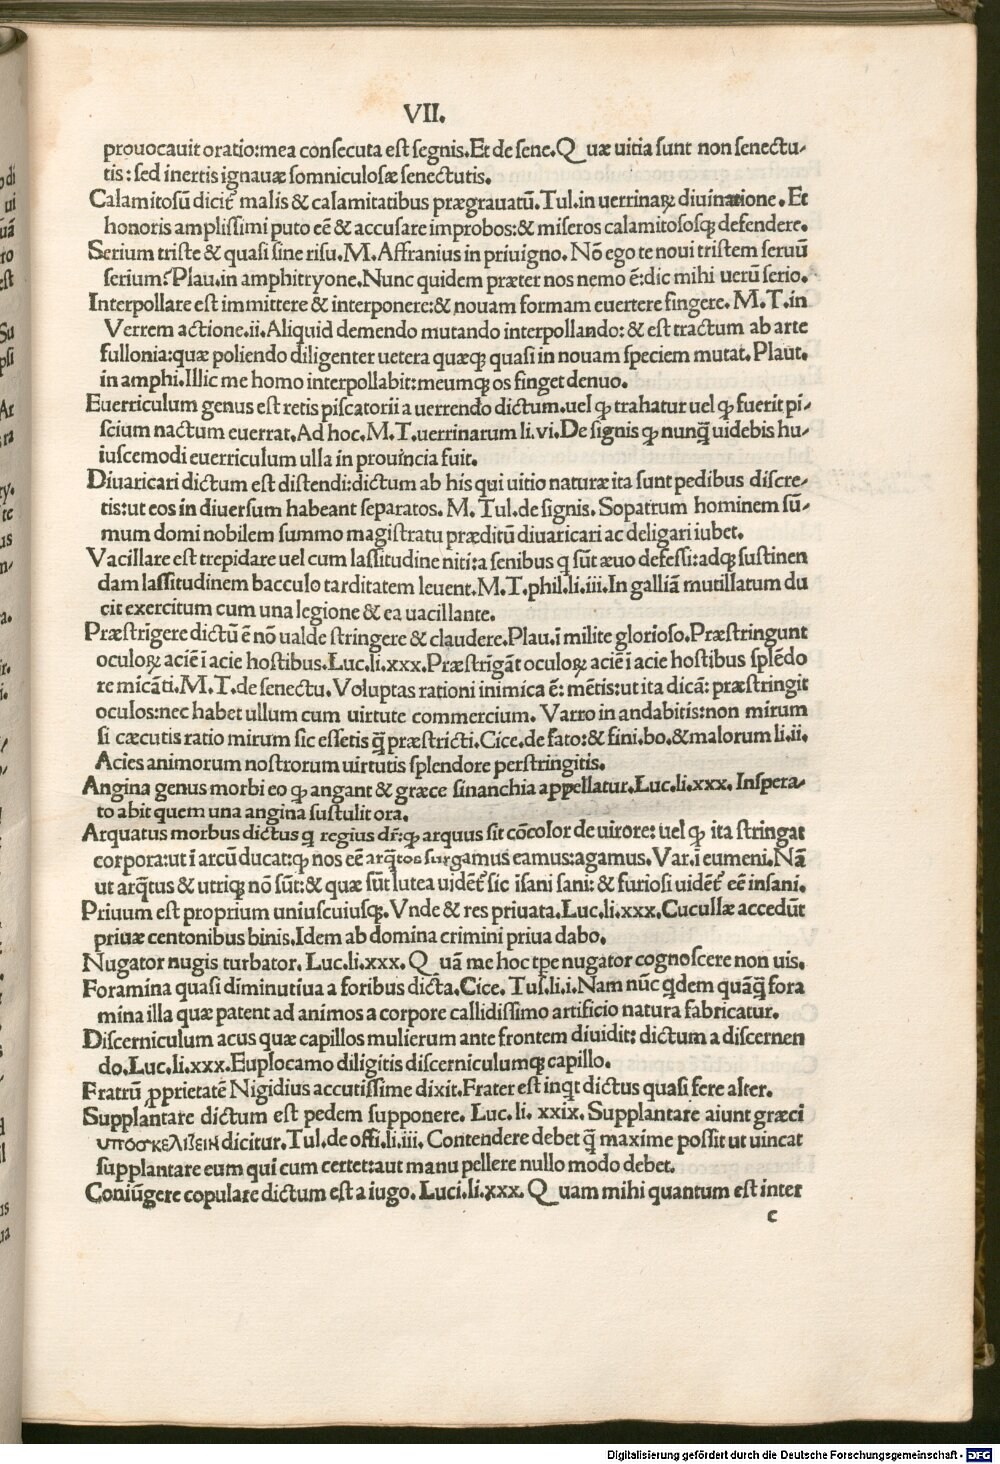 VII.
prouocauit oratio:mea consecuta est segnis.Et de sene.Quæ uitia sunt non senectu-
tis: sed inertis ignauæ somniculosæ senectutis.
Calamitosū dicit᷑ malis & calamitatibus prægrauatū.Tul.in uerrinaꝝ diuinatione.Et
honoris amplissimi puto eē & accusare improbos:& miseros calamitososꝗ defendere.
Serium triste & quasi sine risu.M.Affranius in priuigno. Nō ego te noui tristem seruū
serium? Plau.in amphitryone.Nunc quidem præter nos nemo ē:dic mihi uerū serio.
Interpollare est immittere & interponere:& nouam formam euertere fingere. M.T.in
Verrem actione.ii.Aliquid demendo mutando interpollando: & est tractum ab arte
fullonia:quæ poliendo diligenter uetera quæꝗ quasi in nouam speciem mutat. Plaut.
in amphi.Illic me homo interpollabit:meumꝗ os finget denuo.
Euerriculum genus est retis piscatorii a uerrendo dictum.uel ꝙ trahatur uel ꝙ fuerit pi-
scium nactum euerrat.Ad hoc.M.T.uerrinarum li.vi.De signis ꝙ nunq̄ uidebis hu-
iuscemodi euerriculum ulla in prouincia fuit.
Diuaricari dictum est distendi:dictum ab his qui uitio naturæ ita sunt pedibus discre-
tis:ut eos in diuersum habeant separatos. M. Tul.de signis. Sopatrum hominem sū-
mum domi nobilem summo magistratu præditū diuaricari ac deligari iubet.
Vacillare est trepidare uel cum lassitudine niti:a senibus q sūt æuo defessi:adꝗ sustinen
dam lassitudinem bacculo tarditatem leuent.M.T.phil.li.iii.In galliā mutillatum du
cit exercitum cum una legione & ea uacillante.
Præstrīgere dictū ē nō ualde stringere & claudere.Plau.ī milite glorioso.Præstringunt
oculoꝝ aciē ī acie hostibus.Luc.li.xxx.Præstrīgāt oculoꝝ aciē ī acie hostibus splēdo
re micāti.M.T.de senectu.Voluptas rationi inimica ē: mētis:ut ita dicā: præstringit
oculos:nec habet ullum cum uirtute commercium. Varro in andabitis:non mirum
si cæcutis ratio mirum sic essetis q̄ præstricti.Cice.de fato:& fini.bo.& malorum li.ii.
Acies animorum nostrorum uirtutis splendore perstringitis.
Angina genus morbi eo ꝙ angant & græce sinanchia appellatur.Luc.li.xxx. Inspera-
to abit quem una angina sustulit ora.
Arquatus morbus dictus q regius dr̄:ꝙ arquus sit cōcolor de uirore: uel ꝙ ita stringat
corpora:ut ī arcū ducat:ꝙ nos eē arq̄tos surgamus eamus:agamus. Var.ī eumeni.Nā
ut arq̄tus & utriꝗ nō sūt:& quæ sūt lutea uidēt᷑ sic īsani sani: & furiosi uidēt᷑ eē insani.
Priuum est proprium uniuscuiusꝗ. Vnde & res priuata.Luc.li.xxx.Cucullæ accedūt
priuæ centonibus binis.Idem ab domina crimini priua dabo.
Nugator nugis turbator. Luc.li.xxx. Quā me hoc tpe nugator cognoscere non uis.
Foramina quasi diminutiua a foribus dicta.Cice. Tus.li.i.Nam nūc qdem quāq̄ fora
mina illa quæ patent ad animos a corpore callidissimo artificio natura fabricatur.
Discerniculum acus quæ capillos mulierum ante frontem diuidit: dictum a discernen
do.Luc.li.xxx.Euplocamo diligitis discerniculumꝗ capillo.
Fratrū ꝓprietatē Nigidius accutissime dixit.Frater est inqt dictus quasi fere alter.
Supplantare dictum est pedem supponere. Luc. li. xxix. Supplantare aiunt græci
υποσκελιζειν dicitur.Tul.de offi.li.iii. Contendere debet q̄ maxime possit ut uincat
supplantare eum qui cum certet:aut manu pellere nullo modo debet.
Coniūgere copulare dictum est a iugo. Luci.li.xxx. Quam mihi quantum est inter
c
Digitalisierung gefördert durch die Deutsche Forschungsgemeinschaft - DFG